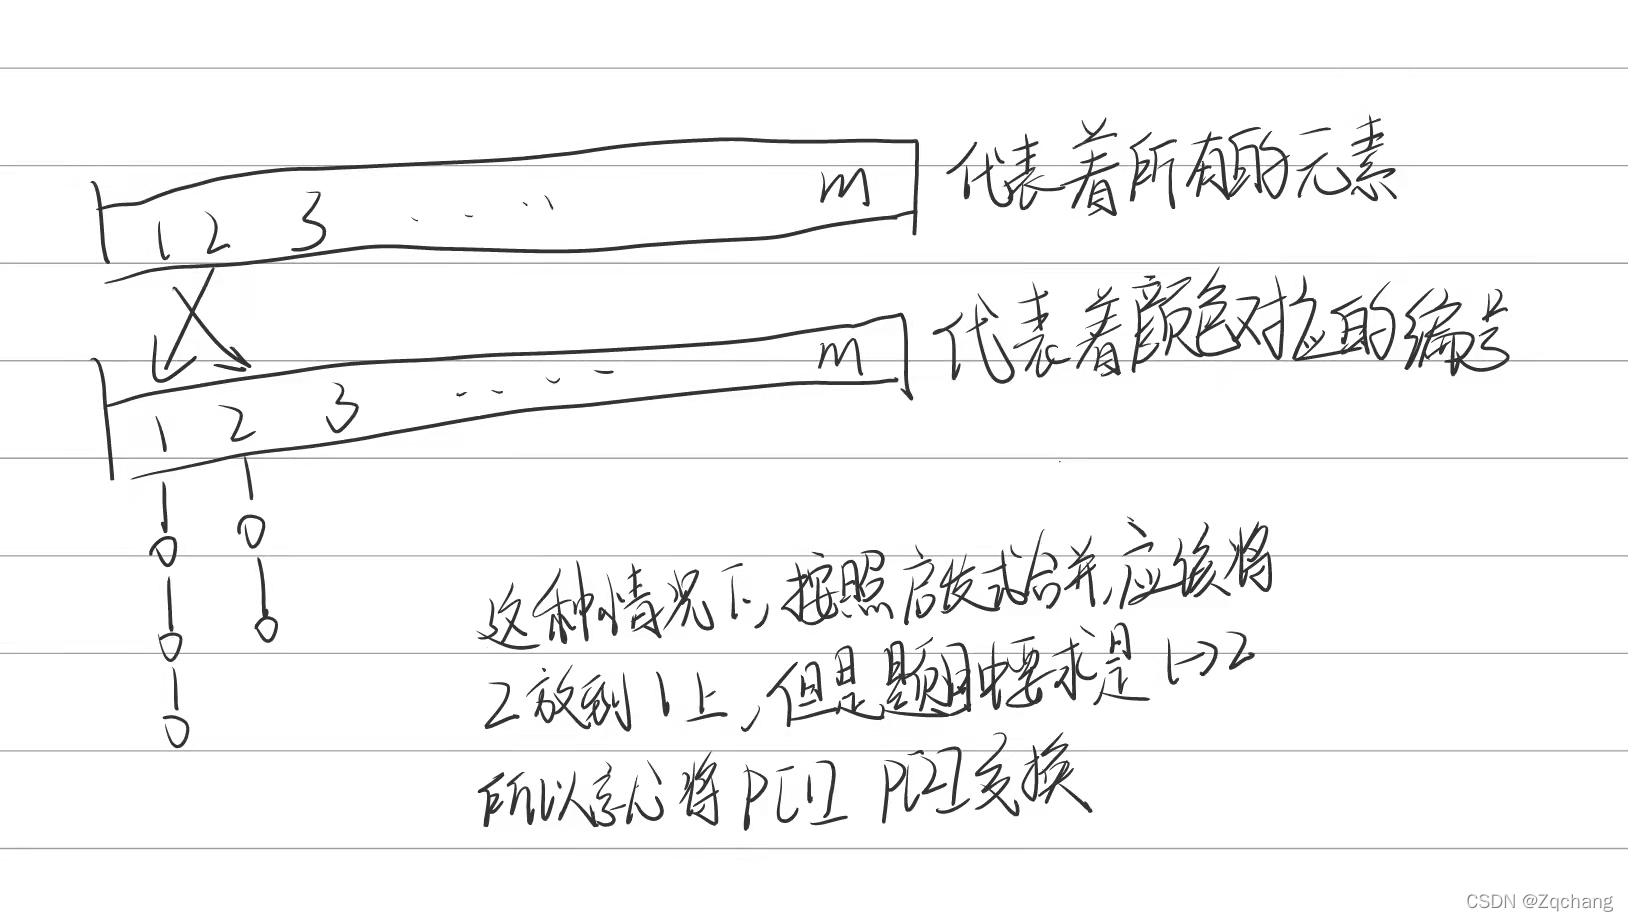 1 2 3 ····· m
代表着所有的元素
1 2 3 ····· m
代表着颜色对应的编号
这种情况下,按照启发式合并,应该将
2放到1上,但是题目中要求是1->2
所以就将P[1] P[2]交换
CSDN @Zqchang